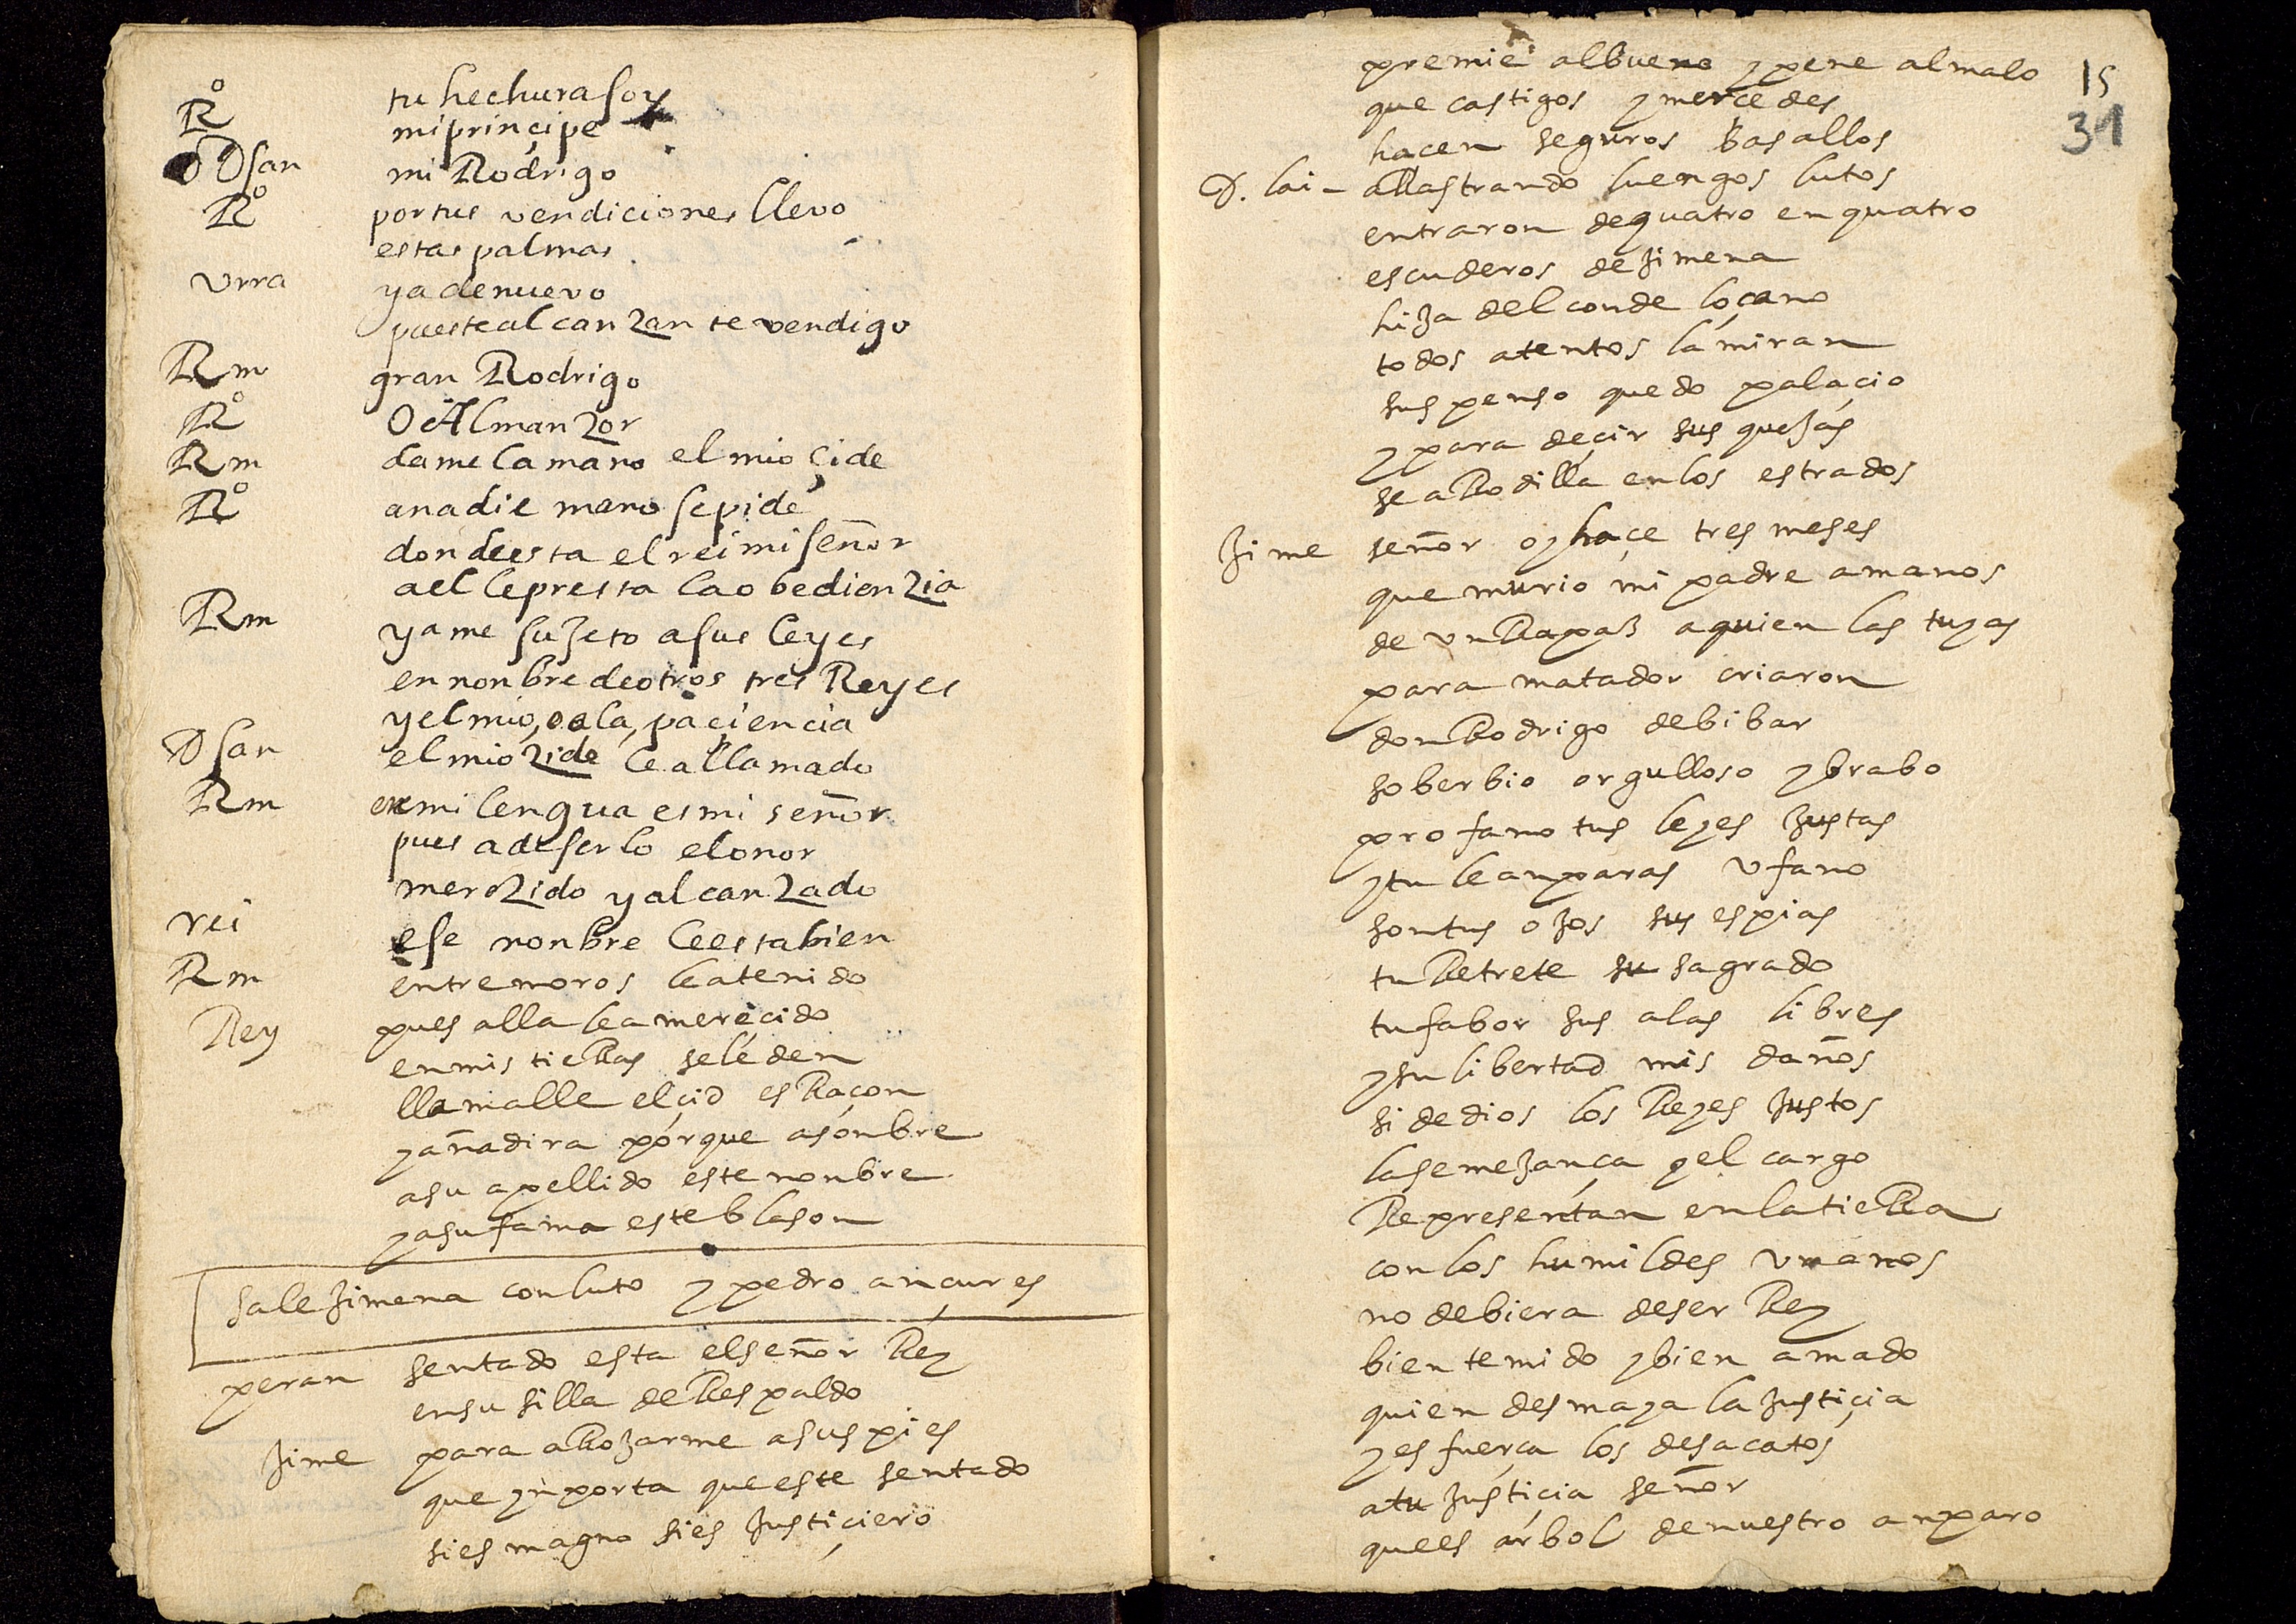 Rº tu hechura soy
mi principe
D san mi Rodrigo
Rº por tus vendiciones llevo
estas palmas
Urra ya de nuevo
pues te alcanzan te vendigo
Rm gran Rodrigo
Rº O Almanzor
Rm dame la mano el mio çide
Rº a nadie mano se pide
donde esta el rei mi señor
a el le presta la obedienzia
Rm ya me sujeto a sus leyes
en nonbre de otros tres Reyes
y el mio, o ala, paçiencia
D san el mio zide le a llamado
Rm en mi lengua es mi señor
pues a de serlo el onor
merezido y alcanzado
rei ese nonbre le esta bien
Rm entre moros le a tenido
Rey pues alla le a mereçido
en mis tieRas se le den
llamalle el çid es Raçon
y añadira porque asonbre
a su apellido este nonbre
y a su fama este blason
sale jimena con luto y pedro ançures
peran sentado esta el señor Rey
en su silla de Respaldo
jime para aRojarme a sus pies
que ynporta que este sentado
si es magno si es justiçiero
15
31
premie al bueno y pene al malo
que castigos y mercedes
hacen seguros basallos
D. lai- aRastrando luengos lutos
entraron de quatro en quatro
escuderos de jimena
hija del conde loçano
todos atentos la miran
suspenso quedo palaçio
y para deçir sus quejas
se aRodilla en los estrados
jime señor oy haçe tres meses
que murio mi padre a manos
de un Rapaz a quien las tuyas
para matador criaron
don Rodrigo de bibar
soberbio orgulloso y brabo
profano tus leyes justas
y tu le anparas ufano
son tus ojos sus espias
tu Retrete su sagrado
tu fabor sus alas libres
y su libertad mis daños
si de dios los Reyes justos
la semejança y el cargo
Representan en la tieRa
con los humildes umanos
no debiera de ser Rey
bien temido y bien amado
quien desmaya la justiçia
y esfuerça los desacatos
a tu justiçia señor
que es arbol de nuestro anparo